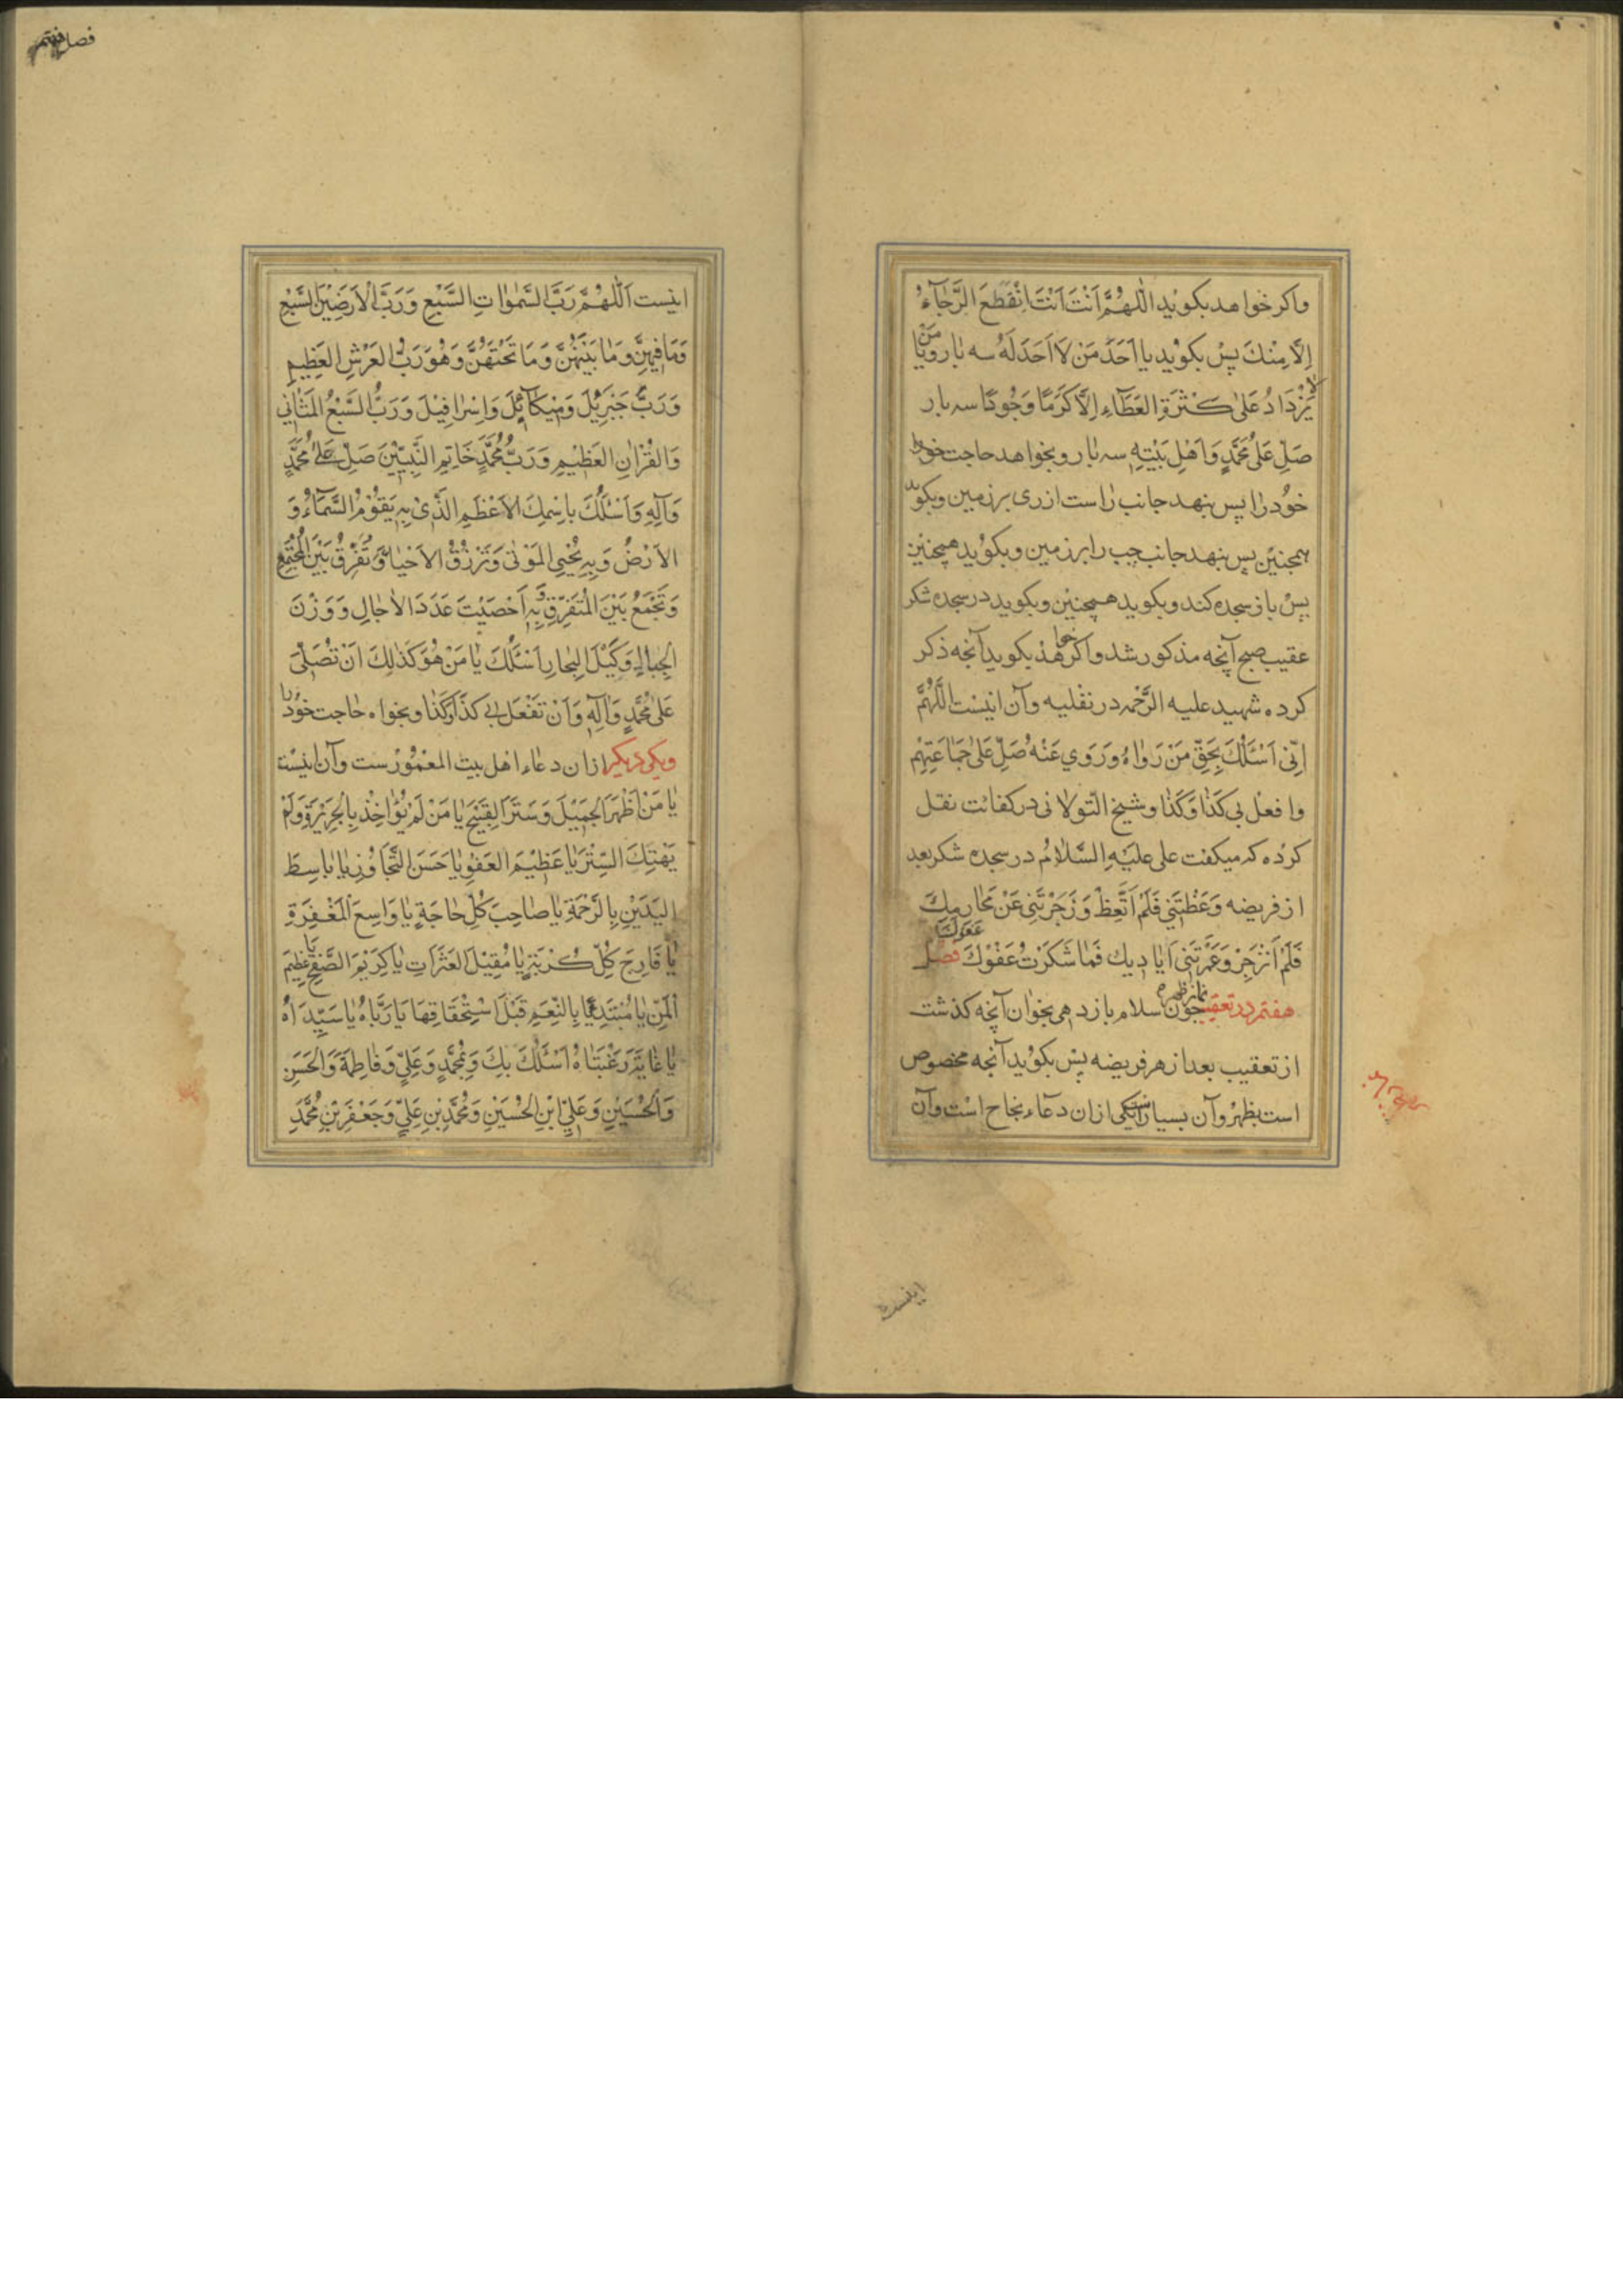 واكر خواهد بكويد اللّهُمَّ اَنْتَ اَنْتَ اِنْقَطَعَ الرَّجٰآءُ
اِلَّا مِنْكَ پس بكويد يا اَحَدَ مَنْ لَا اَحَدَ لَهُ سه بار و يا مَنْ
لا يَزْدَادُ عَلىٰ كَثْرَةِ العَطٰآءِ اِلَّا كَرَمًا وَجُودًا سه بار
صَلِّ عَلىٰ مُحَمَّدٍ وَاَهْلِ بَيْتِهِ سه بار و بخواهد حاجت خود را
خود را پس بنهد جانب راست ازرى برزمين وبكويد
همجنين پس بنهد جانب چپ را برزمين وبكويد همچنين
پس باز سجده كند وبكويد همچنين وبكويد در سجده شكر
عقيب صبح آنچه مذكور شد واكر خواهد بكويد آنچه ذكر
كرده شهيد عليه الرَّحْمه در نفليه وآن اينست اللَّهُمَّ
اِنّى اَسْئَلُكَ بِحَقِّ مَنْ رَوٰاهُ وَرَوي عَنْهُ صَلِّ عَلىٰ جَمٰاعَتِهِمْ
وافعل بى كَذٰا وَكَذٰا وشيخ التّولانى در كفائت نقل
كرده كه ميكفت على عليه السَّلامُ در سجده شكر بعد
از فريضه وَعَظْتَنِي فَلَمْ اَتَّعِظْ وَزَجَرْتَنِى عَنْ مَحٰارِمِكَ
فَلَمْ اَنْزَجِرْ وَغَمَرْتَنِى اَيٰادِيك فَمٰا شَكَرْتُ عَفْوَكَ عَفْوَكَ فصل
هفتم در تعقيب نماز ظهر جون سلام باز دهى بخوان آنچه كذشت
از تعقيب بعد از هر فريضه پس بكويد آنجه مخصوص
است بظهر وآن بسيار است يكى ازان دعاء نجاح است وآن
اينست
فصل هفتم
اينست اَللّٰهُمَّ رَبَّ السَّمٰوٰاتِ السَّبْعِ وَرَبَّ الْاَرَضِيْنَ السَّبْعِ
وَمَا فِيهِنَّ وَمٰا بَيْنَهُنَّ وَمَا تَحْتَهُنَّ وَهُوَ رَبُّ العَرْشِ العَظِيمِ
وَرَبَّ جَبْرَئِيْلَ وَمِيْكٰآئِلَ وَاِسْرٰافِيْلَ وَرَبُّ السَّبْعُ المَثٰانِي
وَالقُرْاٰنِ العَظِيْمِ وَرَبُّ مُحَمَّدٍ خَاتِمِ النَّبِيّيْنَ صَلِّ عَلىٰ مُحَمَّدٍ
وَآلِهِ وَاَسْئَلُكَ بِاسْمِكَ الاَعْظَمِ الَّذِىْ بِهِ يَقُوْمُ السَّمآءُ وَ
الاَرْضُ وَبِهِ تُحْيِى المَوْتٰى وَتَرْزُقُ الاَحْيٰاءَ وَتُفَرِّقُ بَيْنَ المُجْتَمِعِ
وَتَجْمَعُ بَيْنَ المُتَفَرِّقِ وَبِهِ اَحْصَيْتَ عَدَدَ الاٰجٰالِ وَوَزْنَ
الجِبٰالِ وَكَيْلَ البِحٰارِ اَسْئَلُكَ يٰا مَنْ هُوَ كَذٰلِكَ اَنْ تُصَلّىَ
عَلىٰ مُحَمَّدٍ وَاٰلِهِ وَاَنْ تَفْعَلَ بى كَذٰا وَكَذٰا وبخواه حاجت خود را
ويكى ديكر ازان دعاء اهل بيت المعمورست وآن اينست
يٰا مَنْ اَظْهَرَ الجَمِيْلَ وَسَتَرَ القَبِيْحَ يٰا مَنْ لَمْ يُؤٰاخِذْ بِالْجَرِيْرَةِ وَلَمْ
يَهْتِكَ السِّتْرَ يٰا عَظِيْمَ العَفْوِ يٰا حَسَنَ التَّجٰاوُزِ يٰا بٰاسِطَ
اليَدَيْنِ بِالرَّحْمَةِ يٰا صٰاحِبَ كُلِّ حٰاجَةٍ يٰا وَاسِعَ المَغْفِرَةِ
يٰا فَارِجَ كُلِّ كُرْبَةٍ يٰا مُقِيْلَ العَثَرٰاتِ يٰا كَرِيْمَ الصَّفْحِ يٰا عَظِيمَ
المَنِّ يٰا مُبْتَدِءًا بِالنِّعَمِ قَبْلَ اسْتِحْقَاقِهَا يَا رَبّٰاهُ يٰا سَيِّدَاهُ
يٰا غٰايَةَ رَغْبَتٰاهُ اَسْئَلُكَ بِكَ وَبِمُحَمَّدٍ وَعَلِيٍّ وَفٰاطِمَةَ وَالحَسَنِ
وَالحُسَيْنِ وَعَلِيِّ ابْنِ الحُسَيْنِ وَمُحَمَّدِ بْنِ عَلِيٍّ وَجَعْفَرِ بْنِ مُحَمَّدِ